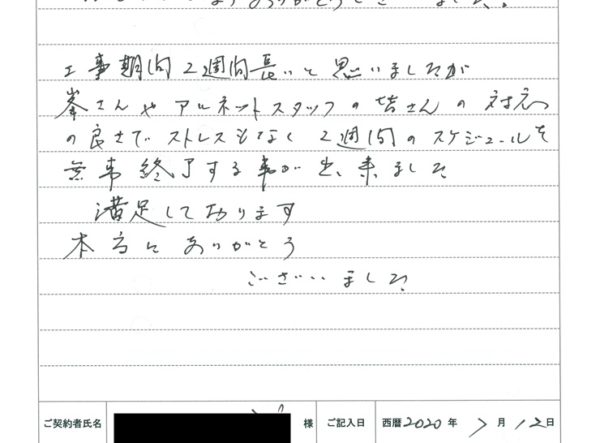 ありがとうございました。
工事期間2週間長いと思いましたが
峯さんやアルネットスタッフの皆さんの対応
の良さでストレスもなく2週間のスケジュールを
無事終了する事が出来ました
満足しております
本当にありがとう
ございました
ご契約者氏名 様 ご記入日 西暦2020年 7月12日